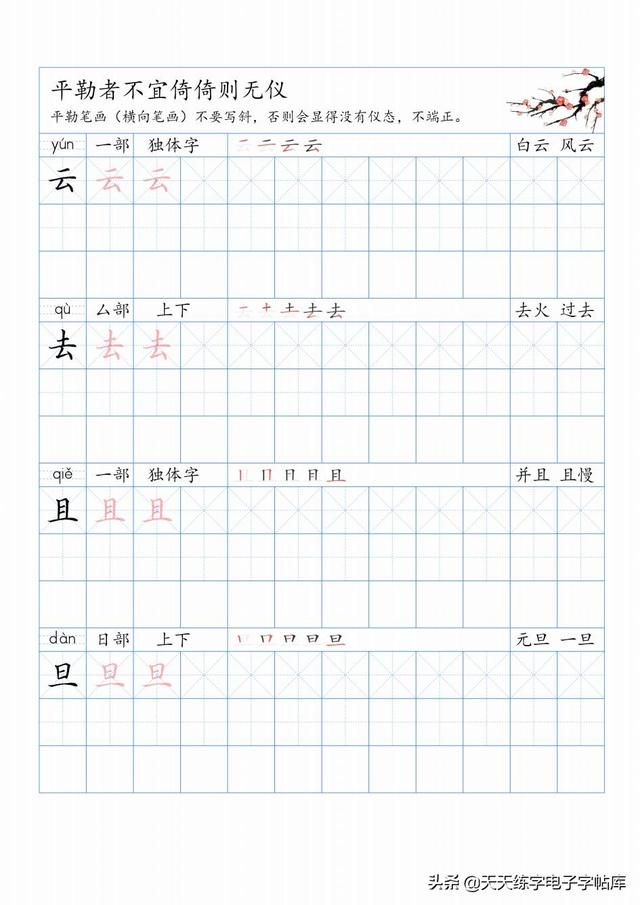 平勒者不宜倚倚则无仪
平勒笔画（横向笔画）不要写斜，否则会显得没有仪态，不端正。
yún 一部 独体字 一 二 云 云 白云 风云
云 云 云
qù 厶部 上下 一 十 土 去 去 去火 过去
去 去 去
qiě 一部 独体字 丨 冂 月 月 且 并且 且慢
且 且 且
dàn 日部 上下 丨 冂 日 日 旦 元旦 一旦
旦 旦 旦
头条 @天天练字电子字帖库